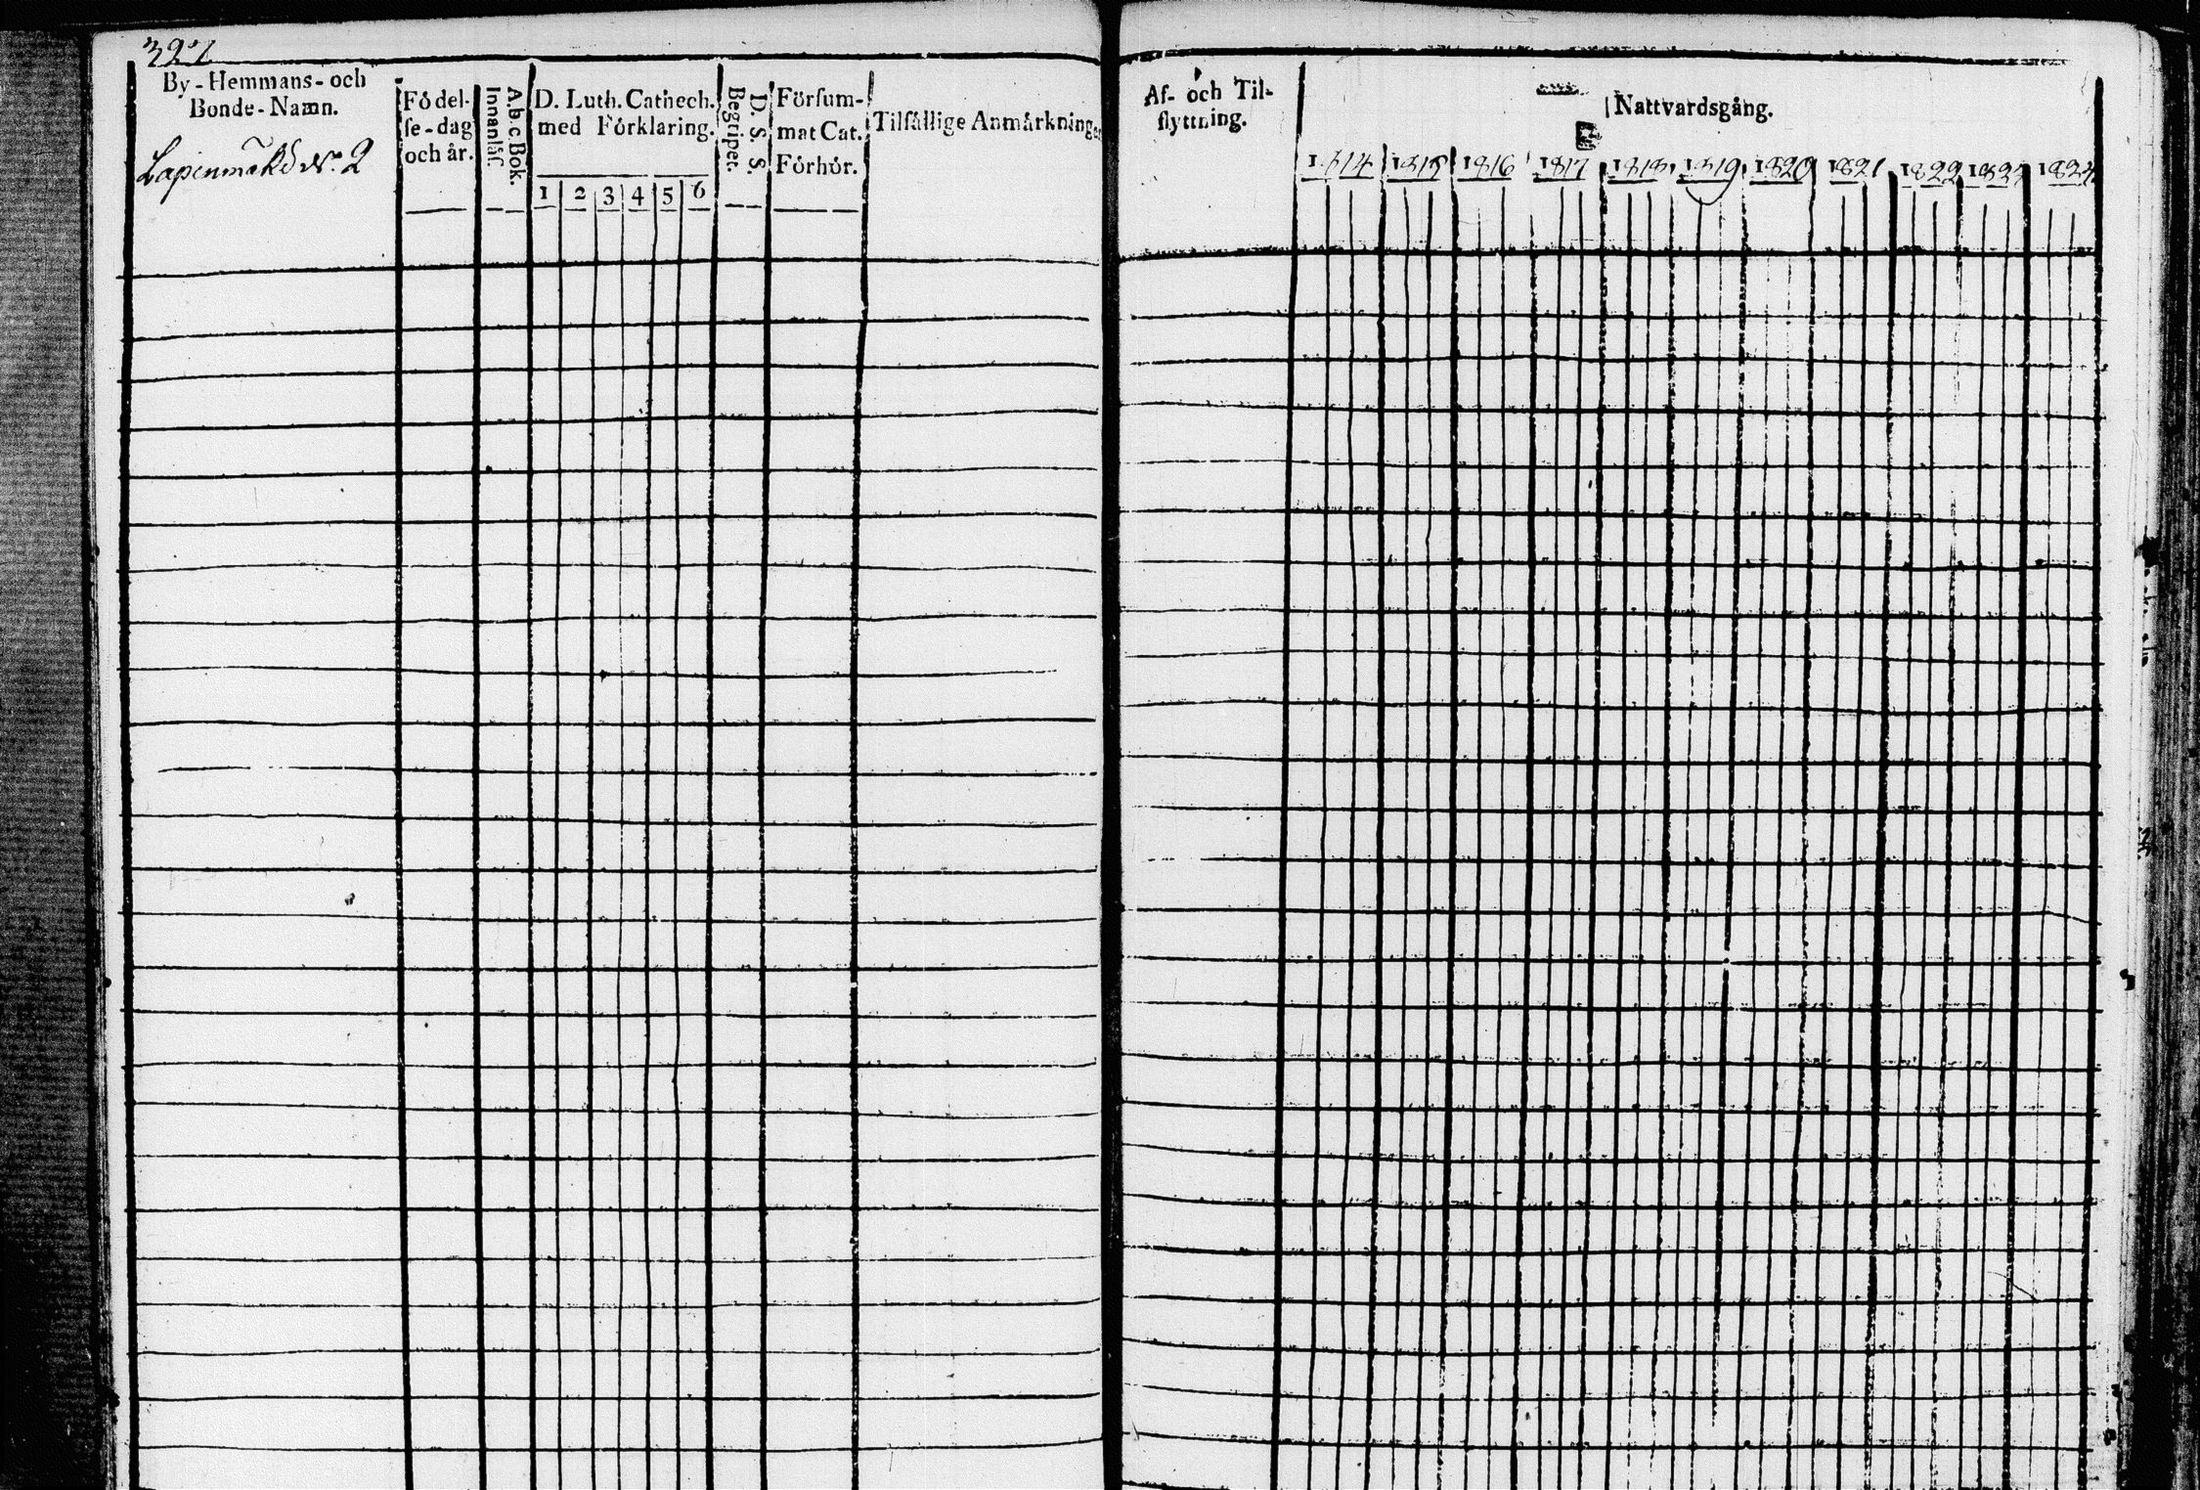 327
By-Hemmans- och
Bonde-Namn.
Lapinmäki No. 2
Födel-
se-dag
och år.
A.b.c Bok.
Innanläſ.
D. Luth. Cathech.
med Förklaring.
1 2 3 4 5 6
D. S. S.
Begripet.
Förſum-
mat Cat.
Förhör.
Tilfällige Anmärkninge
Af- och Til-
flyttning.
Nattvardsgång.
1814 1815 1816 1817 1818 1819 1820 1821 1822 1823 1824